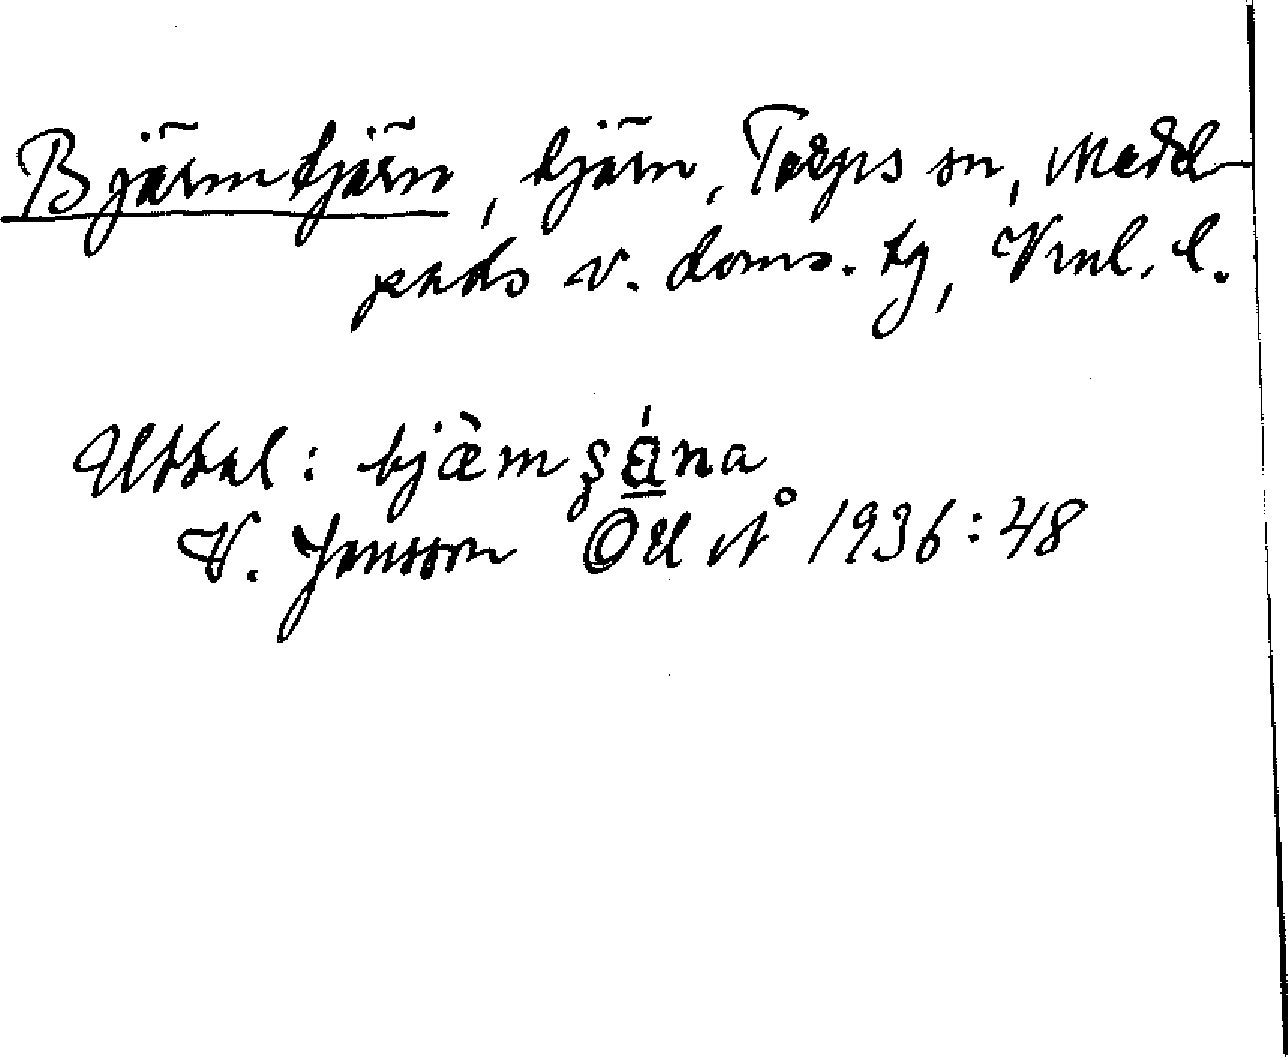 Bjärmtjärn, tjärn, Torps sn, Medel-
pads v. doms. tg, Vrnl. l.
Uttal: bjæ̀mʂá̱na
V. Jansson OUÅ 1936:48